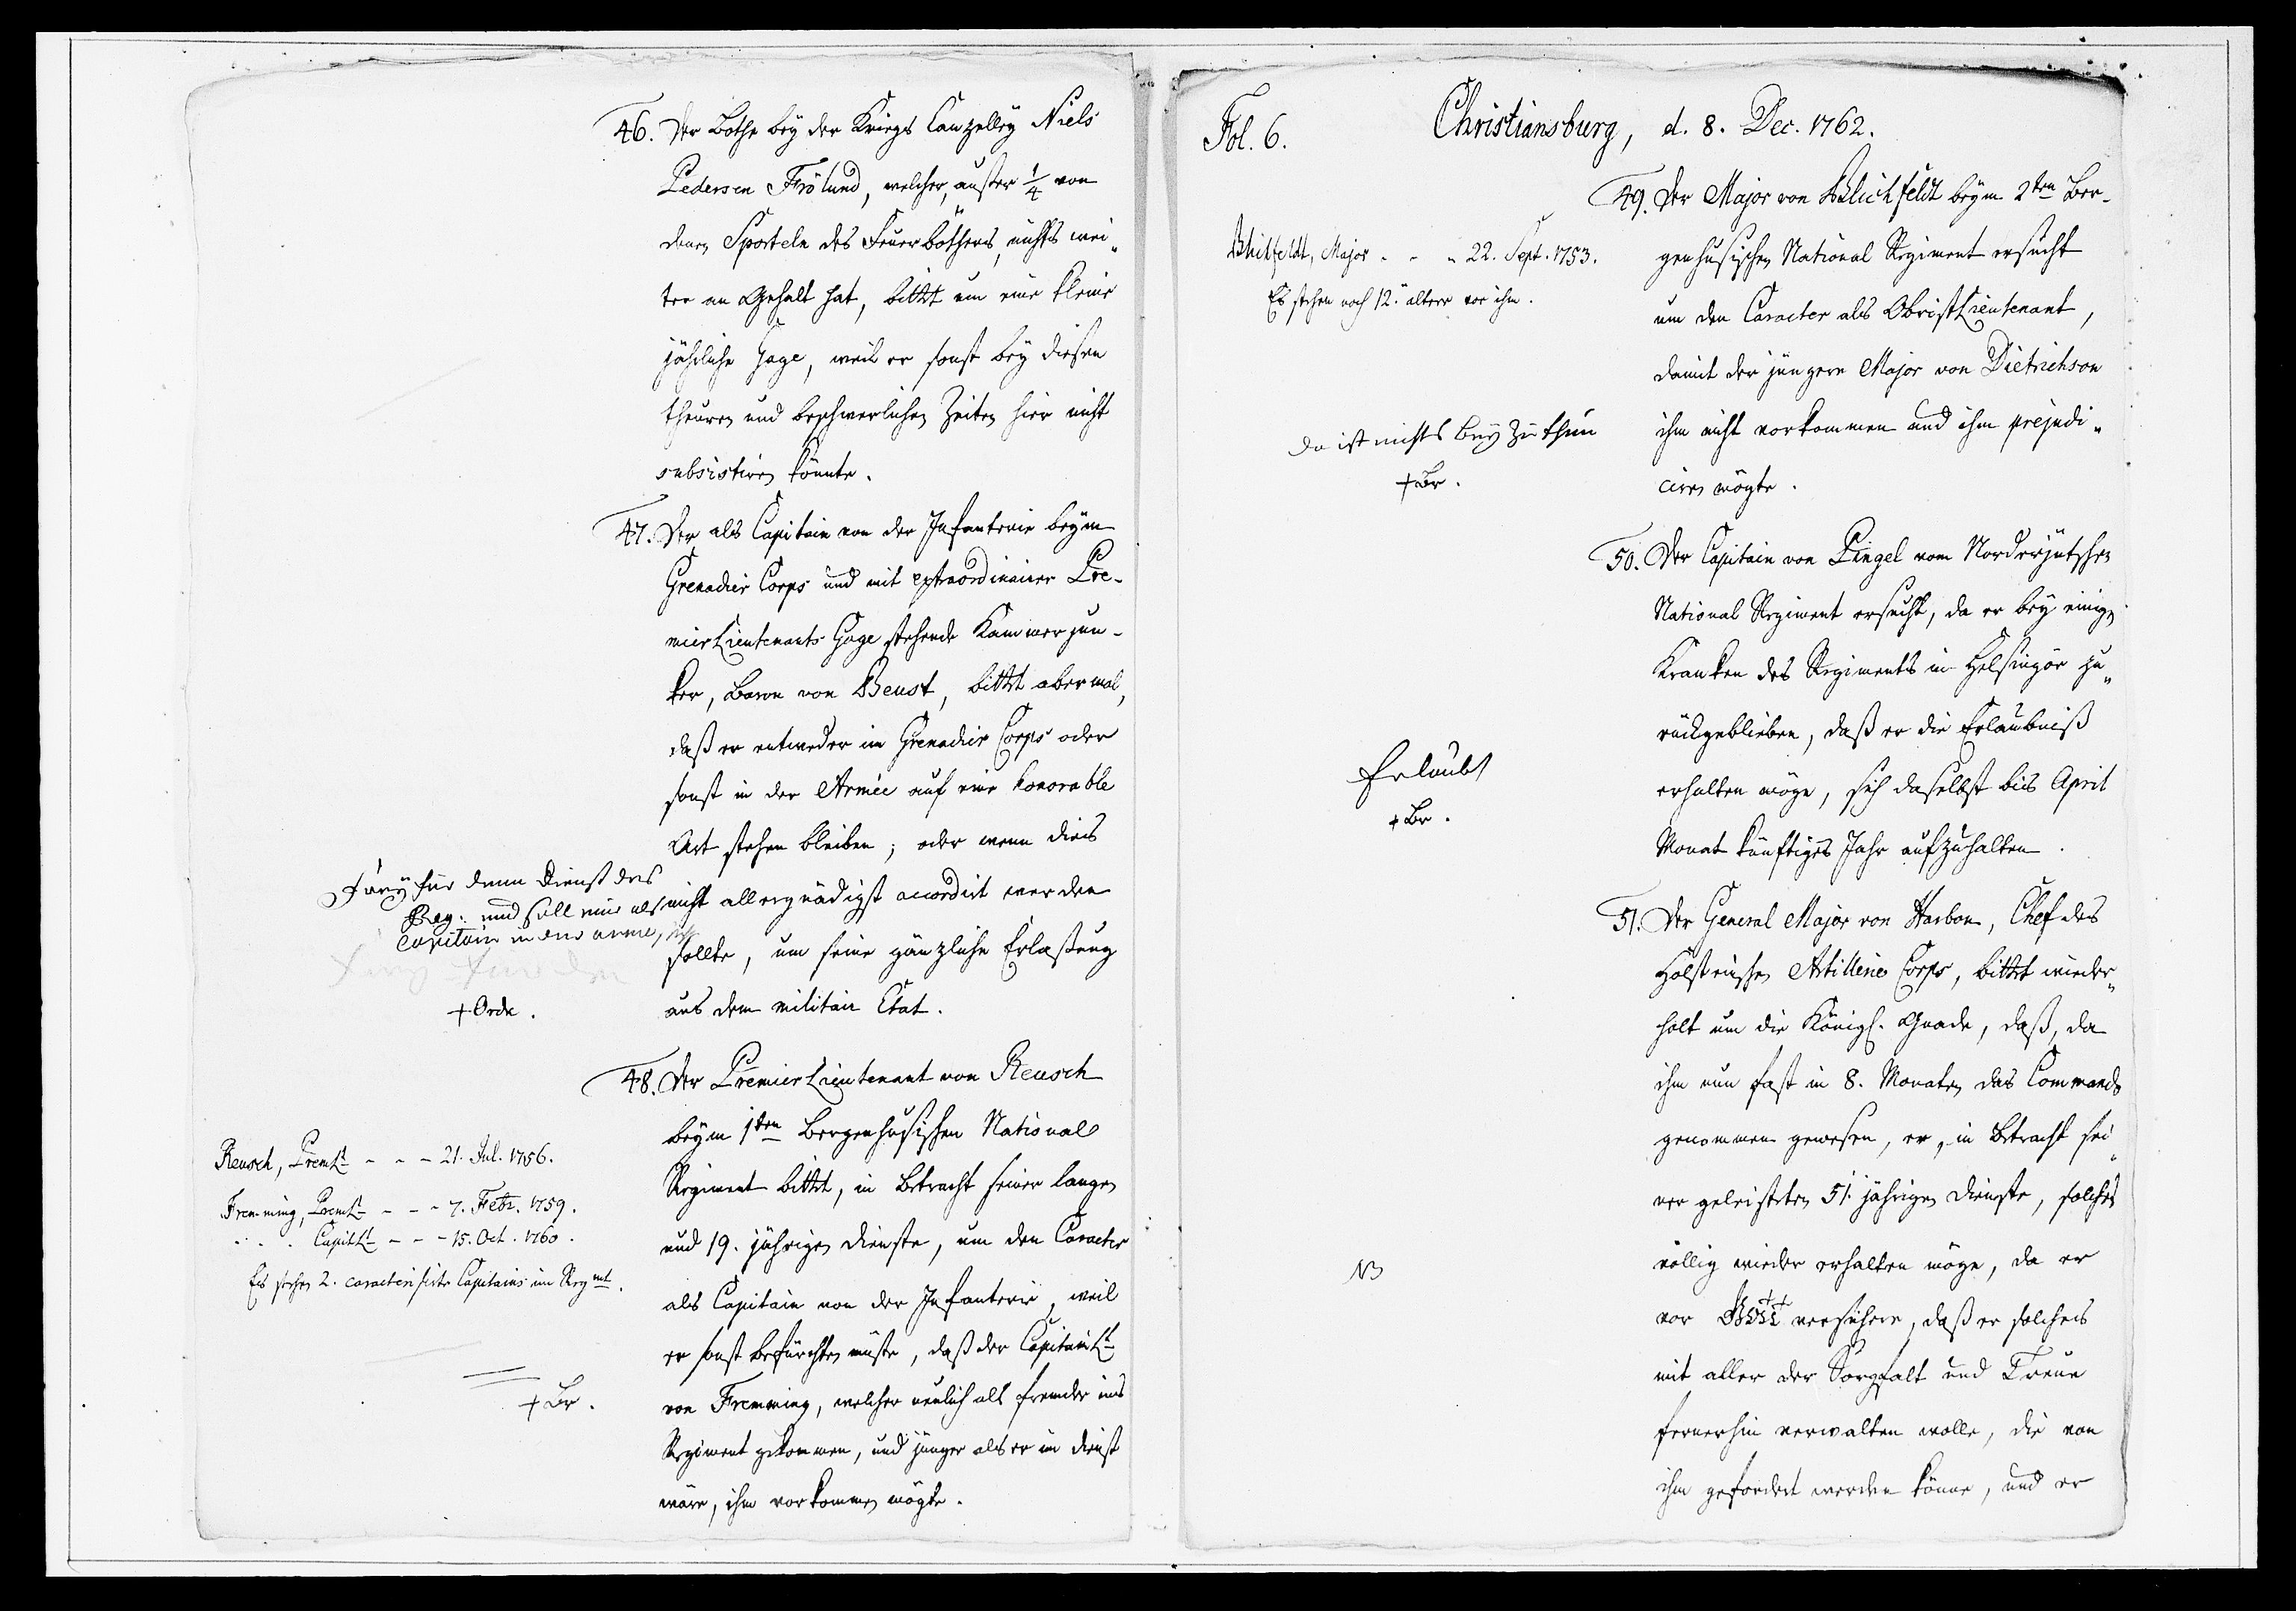 46. Der Bothe bey der Kriegs Canzelley Niels
Pedersen Frölund, welcher, außer 1/4 von
denen Sporteln des Feuerböthers, nichts wei„
ter an Gehalt hat, bittet um eine kleine
jährliche Gage, weil er sonst bey diesen
theuren und beschwerlichen Zeiten hier nicht
subsistiren könnte.
47. Der als Capitain von der Infanterie beym
Grenadier Corps und mit extraordinairer Pre-
mierLieutenants Gage stehende Kammerjun-
ker, Baron von Beust, bittet abermal,
daß er entweder im Grenadier Corps oder
sonst in der Armée auf eine honorable
Art stehen bleiben; oder wenn dies
nicht allergnädigst accordirt werden
sollte, um seine gänzliche Erlaßung
aus dem militair Etat.
für denn Dienst des
Reg: und soll nur als
Capitain in der armee,
+ Ordr.
48. Der PremierLieutenant von Reusch
beym 1ten Bergenhusischen National
Regiment bittet, in Betracht seiner langen
und 19. jährigen Dienste, um den Caracter
als Capitain von der Infanterie, weil
er sonst befürchten müste, daß der CapitainLt
von Fremming, welcher neulich als fremder ins
Regiment gekommen, und jünger als er im Dienst
wäre, ihm vorkommen mögte.
Reusch, PremLt - - - 21. Jul. 1756.
Fremming, PremLt - - - 7. Febr. 1759.
. . . CapitLt - - - 15. Oct. 1760.
Es stehen 2. caracterisirte Capitains im Regmt.
+ Br.
Fol. 6.
Christiansburg, d. 8. Dec. 1762.
49. Der Major von Blichfeldt beym 2ten Ber-
genhusischen National Regiment ersucht
um den Caracter als ObristLieutenant,
damit der jüngere Major von Dietrichson
ihm nicht vorkommen und ihm prejudi„
ciren mögte.
Blichfeldt, Major - - - 22. Sept. 1753.
Es stehen noch 12. ältere vor ihm.
da ist nichts bey zu thun
+ Br.
50. Der Capitain von Pingel vom Norderjütschen
National Regiment ersucht, da er bey einigen
Kranken des Regiments in Helsingör zu„
rückgeblieben, daß er die Erlaubniß
erhalten möge, sich daselbst bis April
Monat künftiges Jahr aufzuhalten.
Erlaubt
+ Br.
51. Der General Major von Harboe, Chef des
Holsteinischen Artillerie Corps, bittet wieder„
holt um die Königl. Gnade, daß, da
ihm nun fast in 8. Monaten das Commando
genommen gewesen, er, in Betracht sei„
ner geleisteten 51. jährigen Dienste, solches
völlig wieder erhalten möge, da er
vor versichere, daß er solches
mit aller der Sorgfalt und Treue
fernerhin verwalten wolle, die von
ihm gefordert werden könne, und er
NB